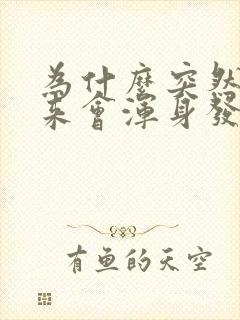 為什麼突然
來會渾身發
有魚的天空